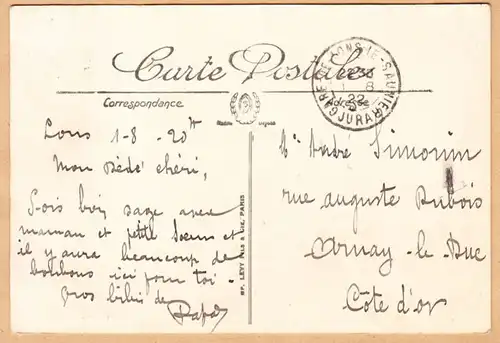 Carte Postale
Correspondance
Adresse
GARE DE LONS-LE-SAUNIER
1 - 8
22
JURA
Lons 1-8-20
Mon Bédé chéri,
Sois bien sage avec
maman et petite Soeur et
il y aura beaucoup de
bonbons ici pour toi -
Gros bibis de
Papa
LEVY FILS & Cie, PARIS
André Simonin
rue auguste Dubois
Arnay-le-Duc
Côte d'or